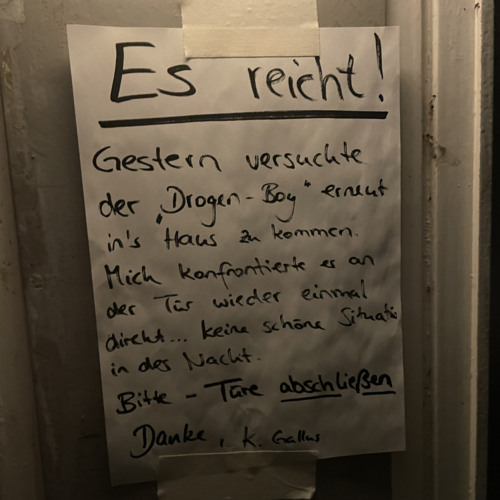 Es reicht!
Gestern versuchte
der „Drogen-Boy“ erneut
in's Haus zu kommen.
Mich konfrontierte es an
der Tür wieder einmal
direkt... keine schöne Situatio
in des Nacht.
Bitte - Türe abschließen
Danke, K. Gallus